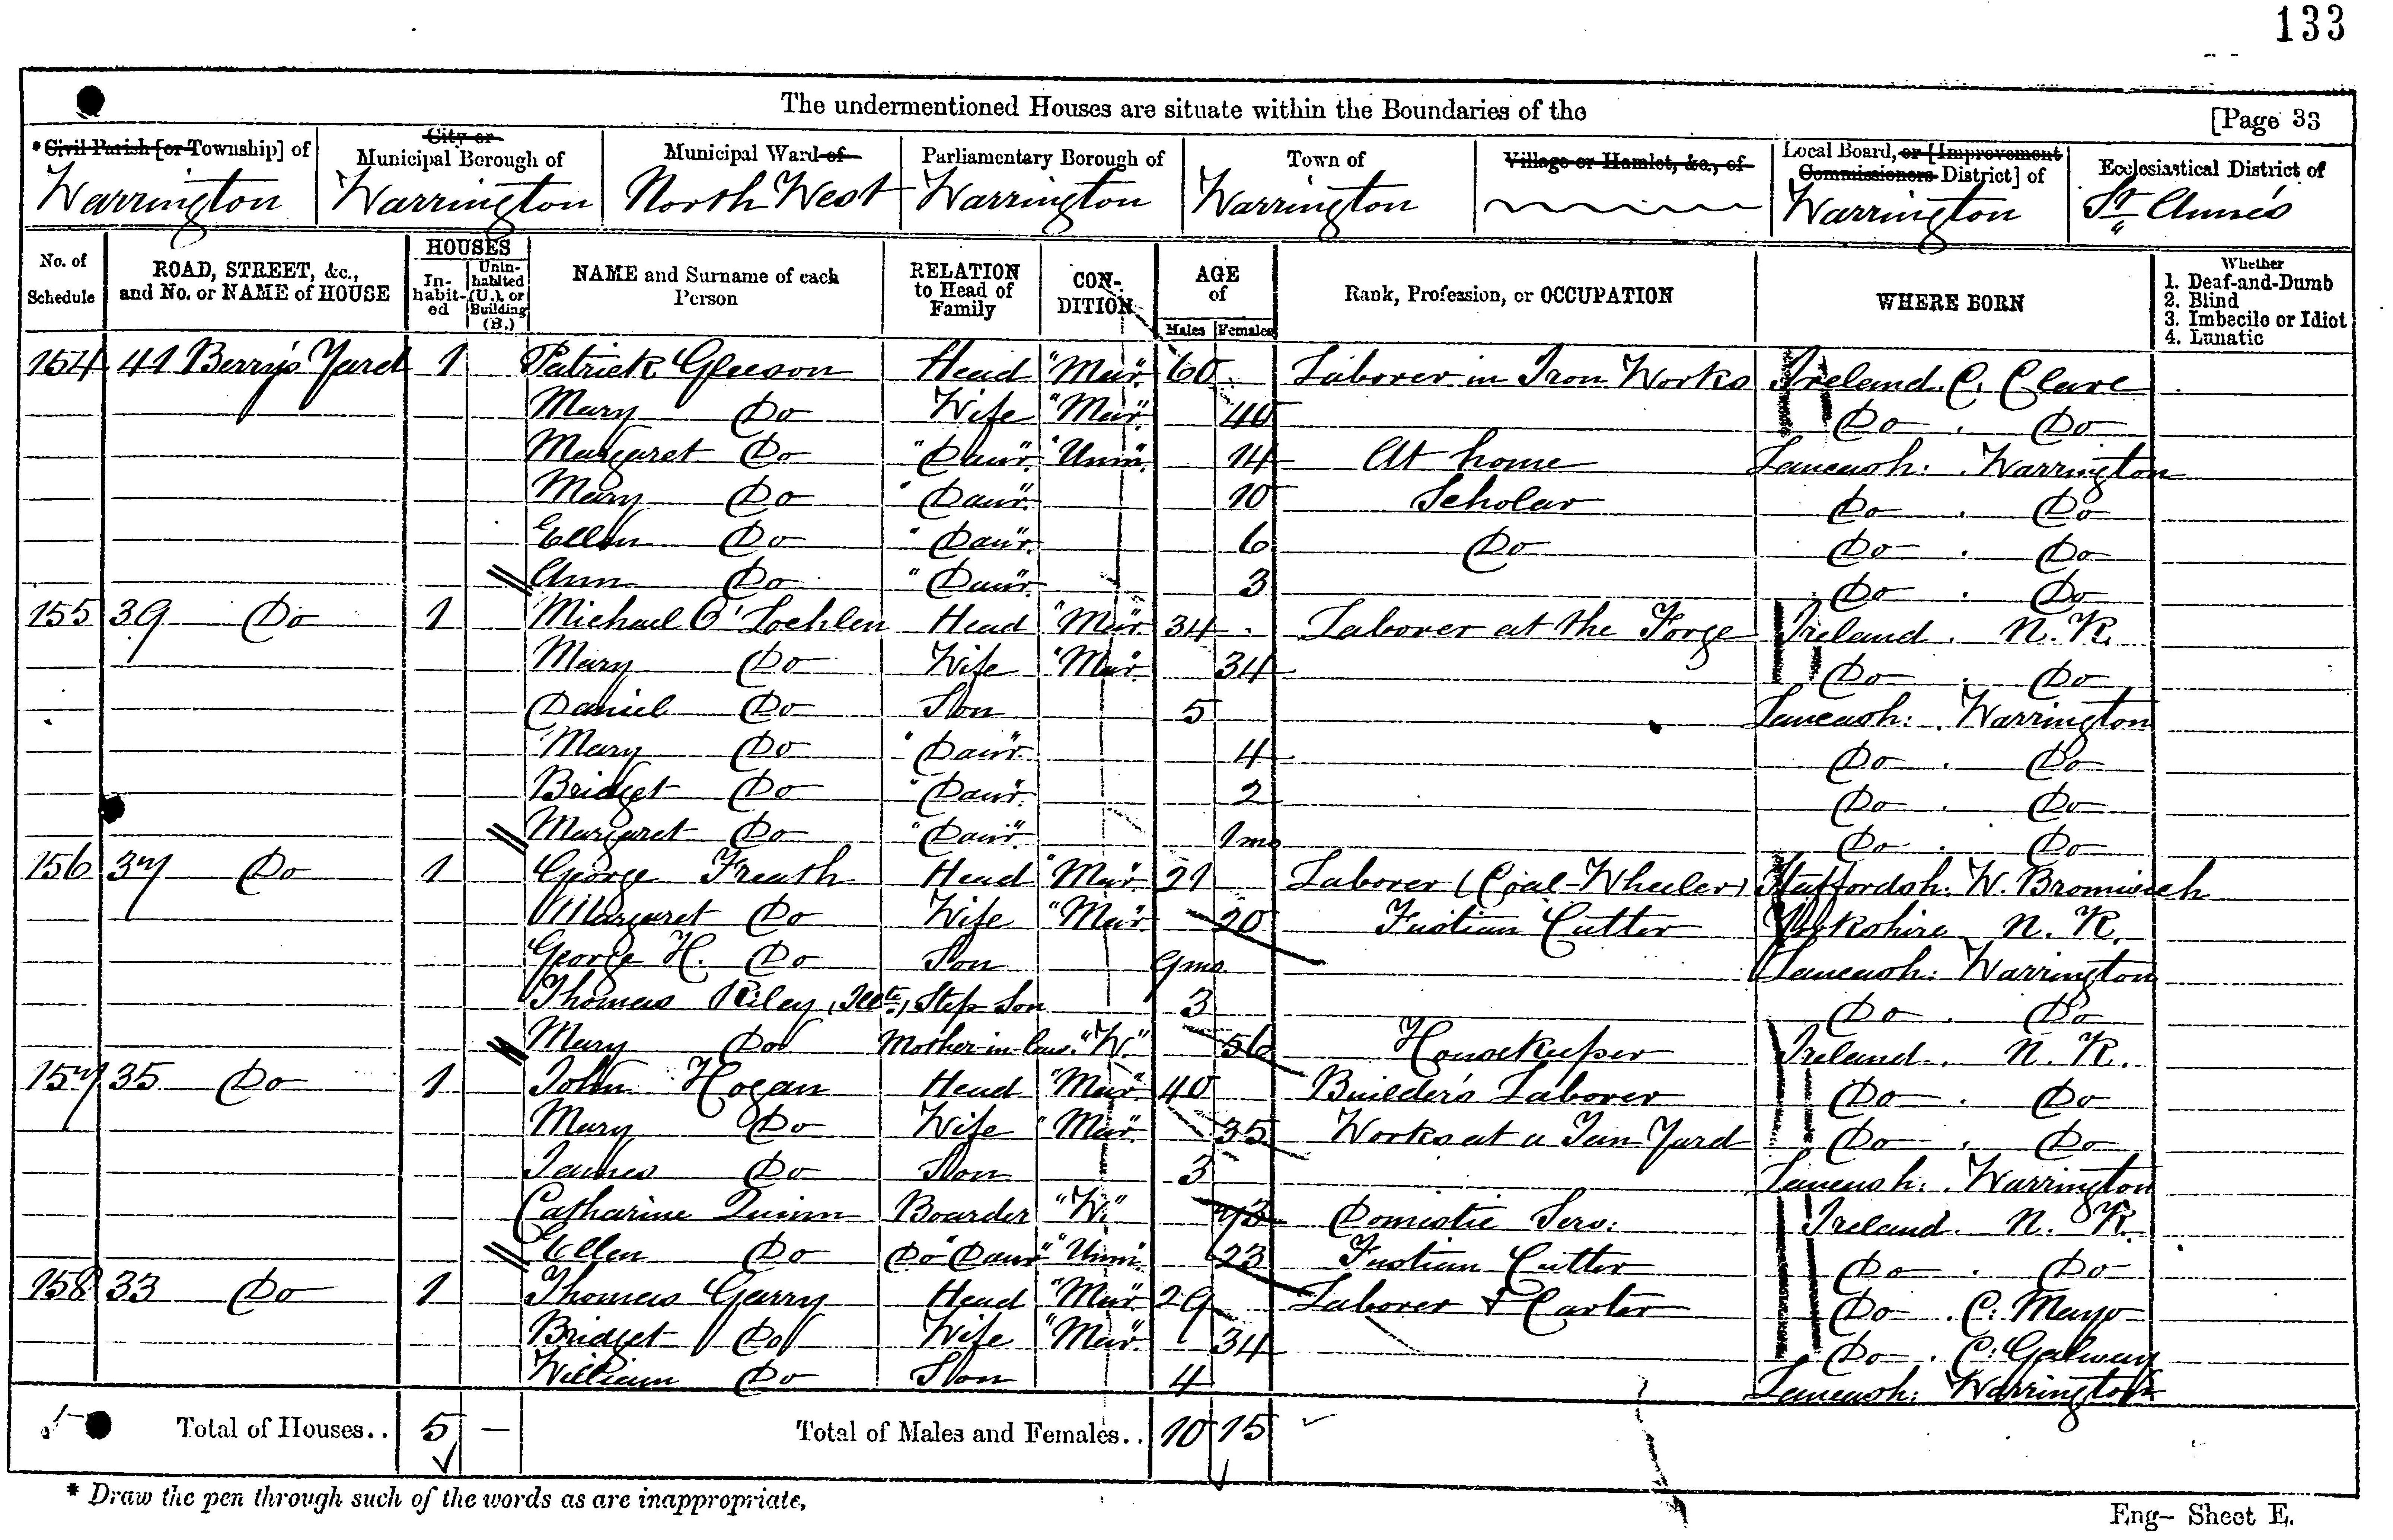 133
The undermentioned Houses are situate within the Boundaries of the [Page 33
* Civil Parish [or Township] of
Warrington
City or Municipal Borough of
Warrington
Municipal Ward of
North West
Parliamentary Borough of
Warrington
Town of
Warrington
Village or Hamlet, &c., of
Local Board, or [Improvement Commissioners District] of
Warrington
Ecclesiastical District of
St Anne's
No. of Schedule
ROAD, STREET, &c., and No. or NAME of HOUSE
HOUSES
In-habit-ed
Unin-habited (U.), or Building (B.)
NAME and Surname of each Person
RELATION to Head of Family
CON-DITION
AGE of
Males Females
Rank, Profession, or OCCUPATION
WHERE BORN
Whether
1. Deaf-and-Dumb
2. Blind
3. Imbecile or Idiot
4. Lunatic
154 41 Berry's Yard 1 Patrick Gleeson Head "Mar." 60 Laborer in Iron Works Ireland. C. Clare
Mary Do Wife "Mar." 40 Do . Do
Margaret Do "Daur." "Unm." 14 At home Lancash: . Warrington
Mary Do "Daur." 10 Scholar Do . Do
Ellen Do "Daur." 6 Do Do . Do
Ann Do "Daur." 3 Do . Do
155 39 Do 1 Michael O'Lochlen Head "Mar." 34 Laborer at the Forge Ireland . N. K.
Mary Do Wife "Mar." 34 Do . Do
Daniel Do Son 5 Lancash: . Warrington
Mary Do "Daur." 4 Do . Do
Bridget Do "Daur." 2 Do . Do
Margaret Do "Daur." 1mo Do . Do
156 37 Do 1 George Freath Head "Mar." 21 Laborer (Coal-Wheeler) Staffordsh: W. Bromwich
Margaret Do Wife "Mar." 20 Fustian Cutter Yorkshire N. K.
George H. Do Son 9mo Lancash: Warrington
Thomas Riley, Step Son 3 Do . Do
Mary Do Mother-in-law "W." 56 Housekeeper Ireland . N. K.
157 35 Do 1 John Hogan Head "Mar." 40 Builder's Laborer Do . Do
Mary Do Wife "Mar." 35 Works at a Tan Yard Do . Do
James Do Son 3 Lancash: . Warrington
Catharine Quinn Boarder "W." 73 Domestic Serv: Ireland . N. K.
Ellen Do Do "Daur" "Unm." 23 Fustian Cutter Do . Do
158 33 Do 1 Thomas Garry Head "Mar." 29 Laborer & Carter Do . C: Mayo
Bridget Do Wife "Mar." 34 Do . C: Galway
William Do Son 4 Lancash: Warrington
Total of Houses.. 5 — Total of Males and Females.. 10 15
* Draw the pen through such of the words as are inappropriate.
Eng— Sheet E.